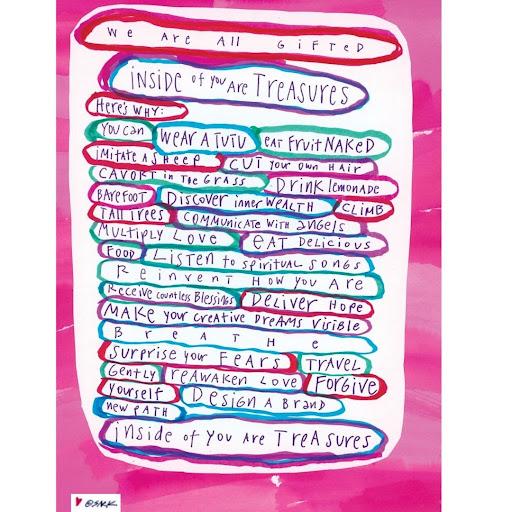 We Are All Gifted
inside of you Are Treasures
Here's why:
you can wear a tutu eat fruit naked
imitate a sheep cut your own hair
cavort in the grass Drink lemonade
barefoot Discover inner wealth climb
tall trees communicate with angels
multiply love eat delicious
food Listen to spiritual songs
Reinvent how you are
Receive countless Blessings Deliver Hope
Make your creative dreams visible
Breathe
Surprise your fears Travel
Gently reawaken love Forgive
yourself Design a Brand
new path
inside of you Are Treasures
@SARK